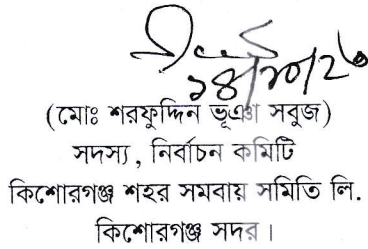 ১৪/১০/২৬
(মোঃ শরফুদ্দিন ভূঞা সবুজ)
সদস্য, নির্বাচন কমিটি
কিশোরগঞ্জ শহর সমবায় সমিতি লি.
কিশোরগঞ্জ সদর।